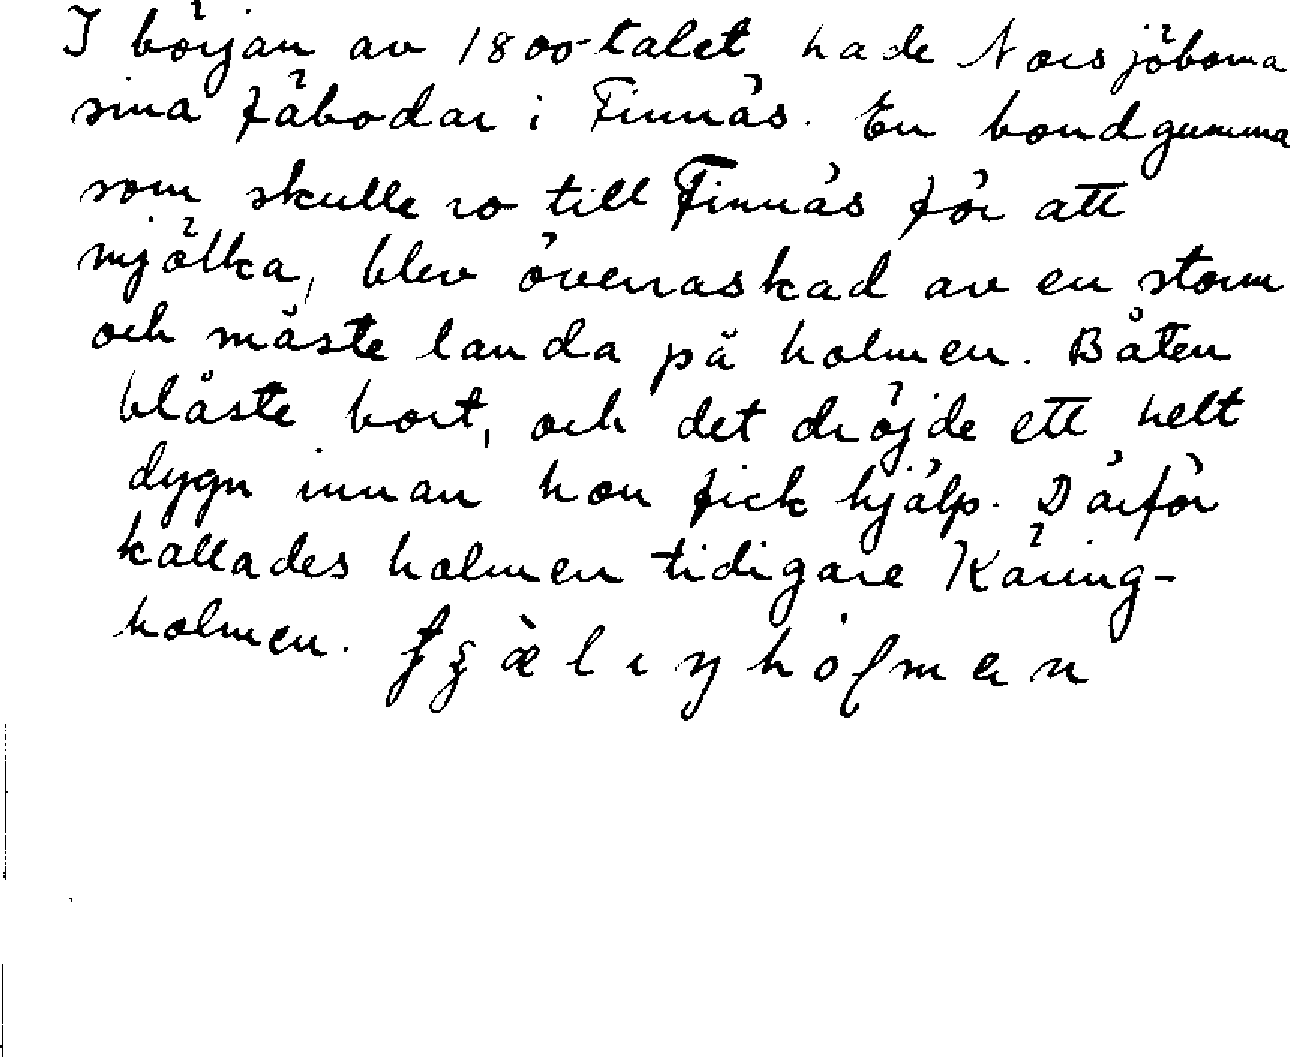 I början av 1800-talet hade Norsjöborna
sina fäbodar i Finnäs. En bondgumma
som skulle ro till Finnäs för att
mjölka, blev överraskad av en storm
och måste landa på holmen. Båten
blåste bort, och det dröjde ett helt
dygn innan hon fick hjälp. Därför
kallades holmen tidigare Käring-
holmen.